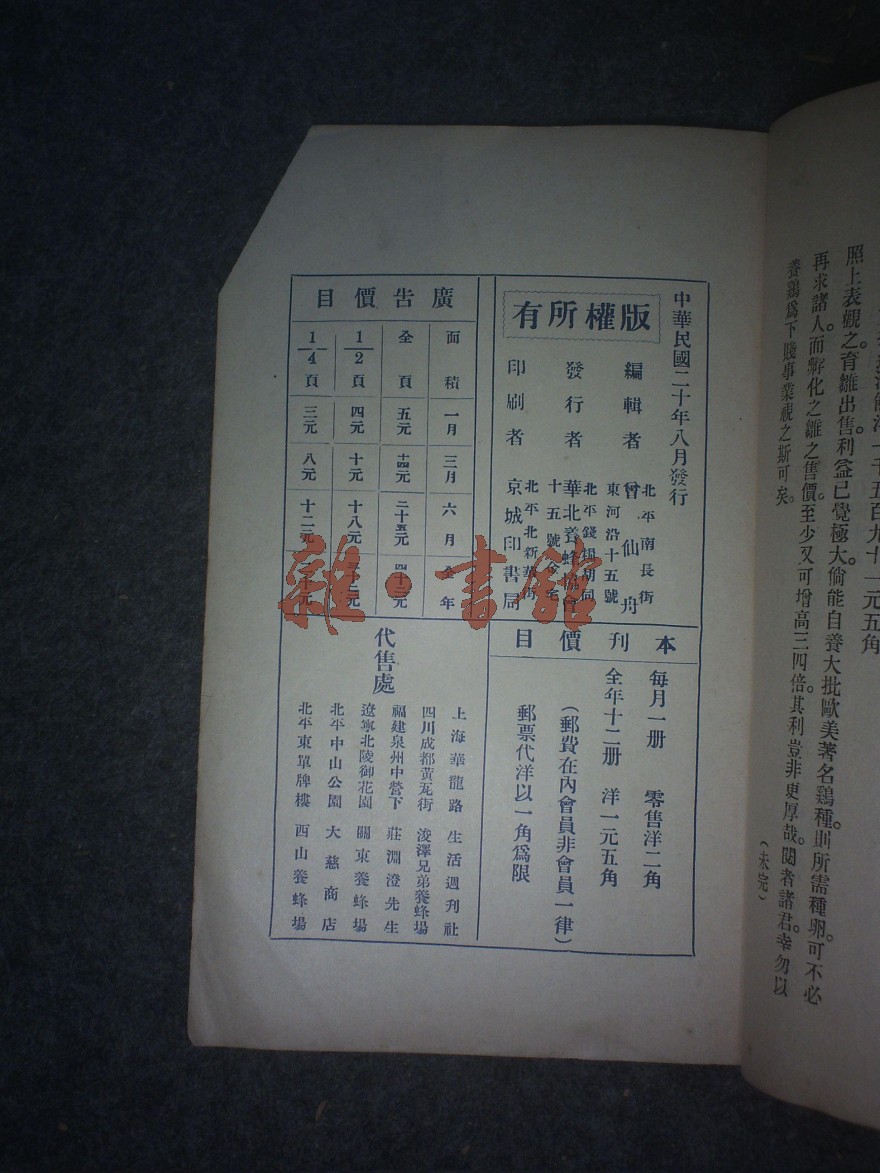 照上表觀之。育雛出售。利益已覺極大。倘能自養大批歐美著名鷄種。則所需種卵。可不必
再求諸人。而孵化之雛之售價。至少又可增高三四倍。其利豈非更厚哉。閱者諸君。幸勿以
養鷄爲下賤事業視之斯可矣。
(未完)
中華民國二十年八月發行
版權所有
編輯者
北平南長街
東河沿十五號
曾仙舟
發行者
北平錢糧胡同
十五號
華北養蜂協會
印刷者
北平北新華街
京城印書局
本刊價目
每月一册 零售洋二角
全年十二册 洋一元五角
(郵費在內會員非會員一律)
郵票代洋以一角爲限
廣告價目
面積 一月 三月 六月 全年
全頁 五元 十四元 二十五元 四十三元
1/2頁 四元 十元 十八元
1/4頁 三元 八元 十二元
代售處
上海華龍路 生活週刊社
四川成都黃瓦街 浚澤兄弟養蜂場
福建泉州中營下 莊淵澄先生
遼寧北陵御花園 關東養蜂場
北平中山公園 大慈商店
北平東單牌樓 西山養蜂場
雜·書館